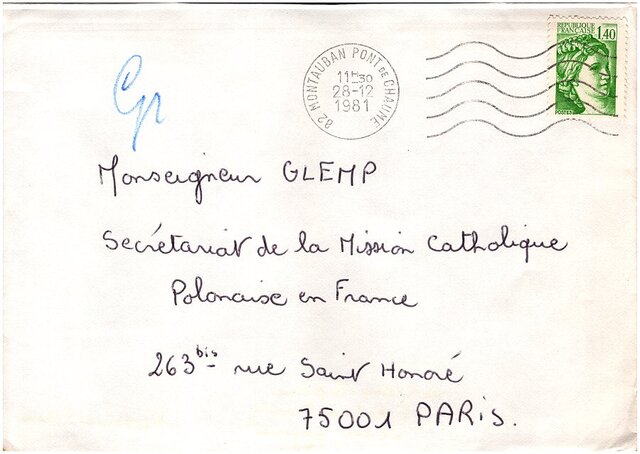 REPUBLIQUE
FRANÇAISE
1,40
POSTES
82 MONTAUBAN PONT DE CHAUME
11H30
28-12
1981
Monseigneur GLEMP
Secrétariat de la Mission Catholique
Polonaise en France
263 bis rue Saint Honoré
75001 PARIS.